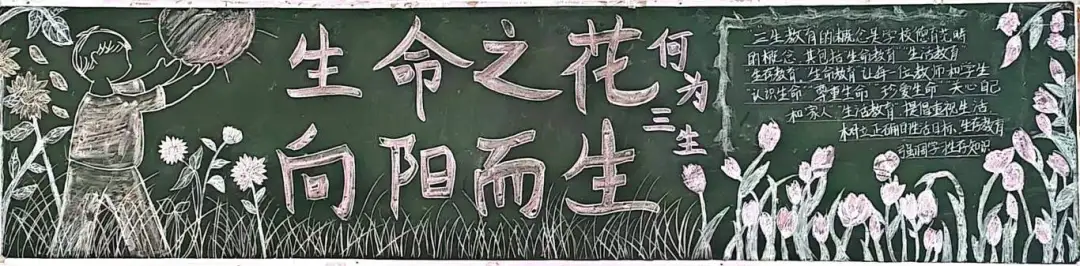 生命之花
向阳而生
何为三生
"三生教育的概念是学校德育光时
的概念,其包括生命教育"生活教育
生存教育,生命教育让每一位教师和学生
"认识生命"尊重生命"珍爱生命"关心自己
和家人"生活教育"提倡重视生活
树立正确的生活目标,生存教育
强调学生存知识